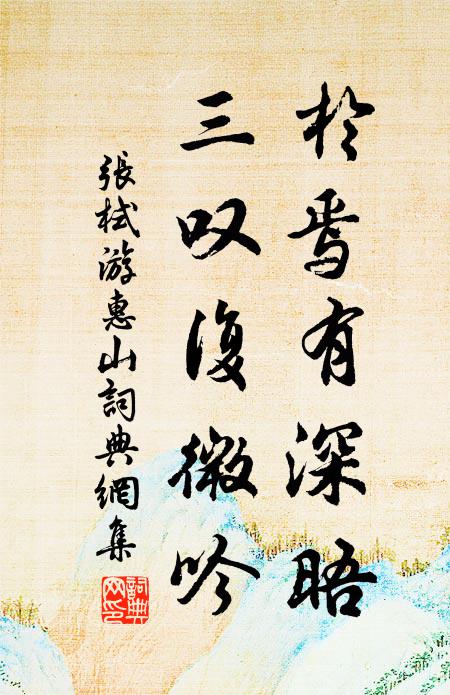 於焉有深晤
三叹復微吟
張栻游惠山詞典網集
詞典网印